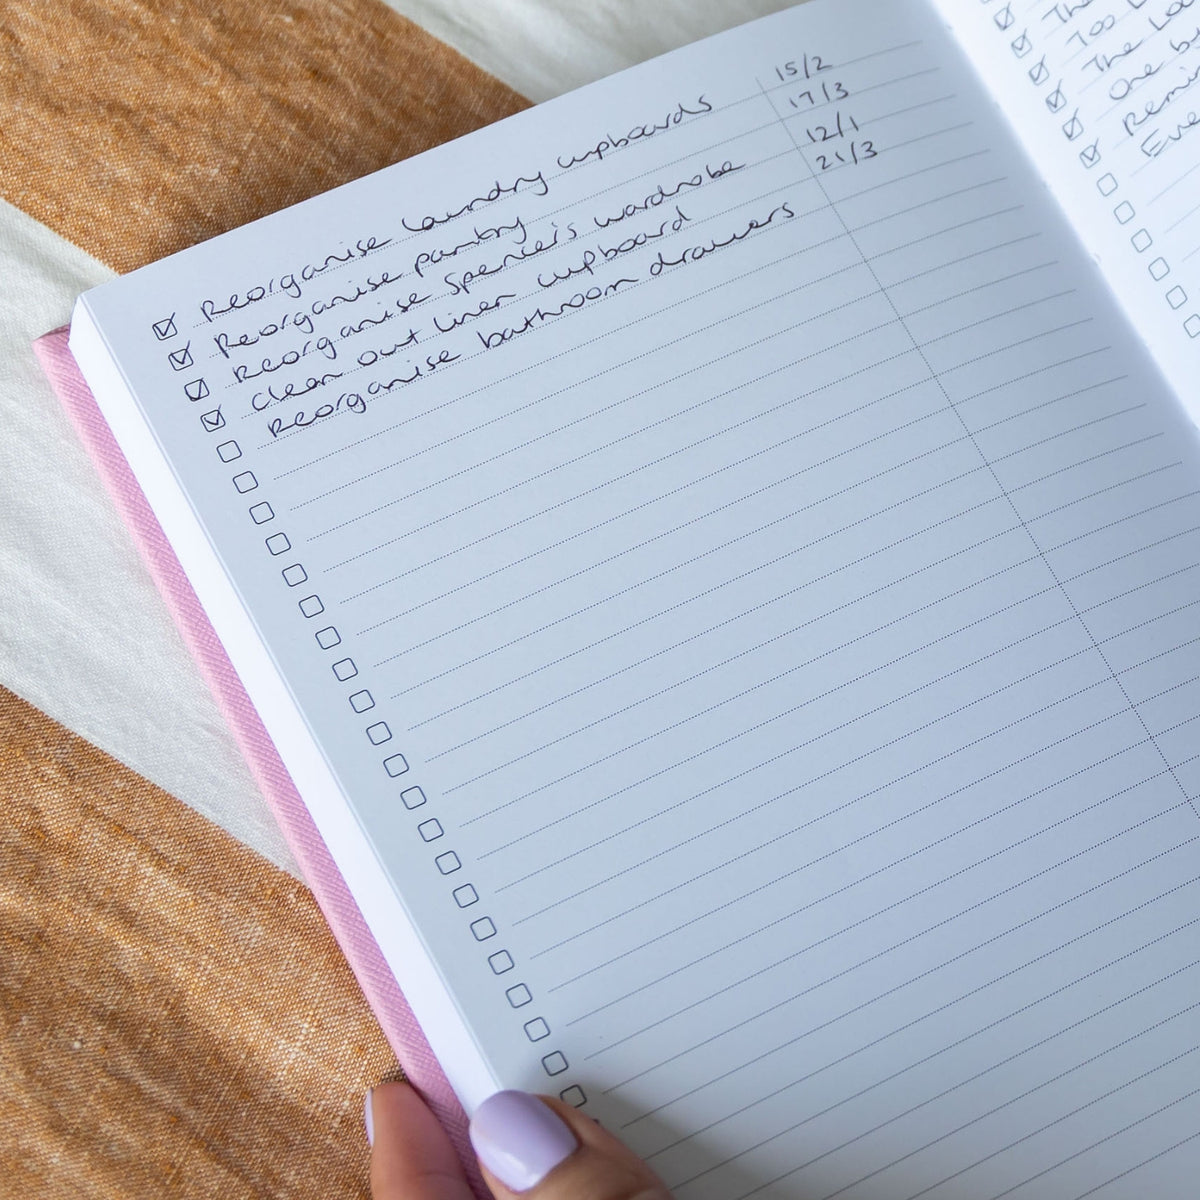 Reorganise laundry cupboards 15/2
Reorganise pantry 17/3
Reorganise Spencer's wardrobe 12/1
Clean out linen cupboard 21/3
Reorganise bathroom drawers
The
Too
The
One
Remi
Eve